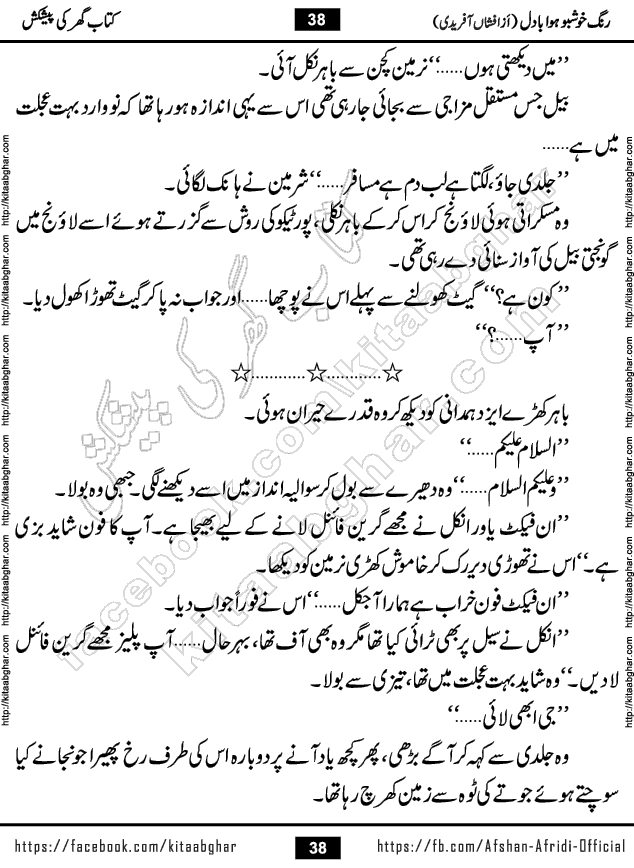 رنگ خوشبو ہوا بادل (از افشاں آفریدی)
38
کتاب گھر کی پیشکش
’’میں دیکھتی ہوں......‘‘ نرمین کچن سے باہر نکل آئی۔
بیل جس مستقل مزاجی سے بجائی جا رہی تھی اس سے یہی اندازہ ہو رہا تھا کہ نووارد بہت عجلت
میں ہے......
’’جلدی جاؤ، لگتا ہے لب دم ہے مسافر......‘‘ شرمین نے ہانک لگائی۔
وہ مسکراتی ہوئی لاؤنج کراس کر کے باہر نکلی، پورٹیکو کی روش سے گزرتے ہوئے اسے لاؤنج میں
گونجتی بیل کی آواز سنائی دے رہی تھی۔
’’کون ہے؟‘‘ گیٹ کھولنے سے پہلے اس نے پوچھا......اور جواب نہ پا کر گیٹ تھوڑا کھول دیا۔
’’آپ......؟‘‘
☆............☆............☆
باہر کھڑے ایزد ہمدانی کو دیکھ کر وہ قدرے حیران ہوئی۔
’’السلام علیکم......‘‘
’’وعلیکم السلام......‘‘ وہ دھیرے سے بول کر سوالیہ انداز میں اسے دیکھنے لگی۔ جبھی وہ بولا۔
’’ان فیکٹ یاور انکل نے مجھے گرین فائنل لانے کے لیے بھیجا ہے۔ آپ کا فون شاید بزی
ہے۔‘‘ اس نے تھوڑی دیر رک کر خاموش کھڑی نرمین کو دیکھا۔
’’ان فیکٹ فون خراب ہے ہمارا آجکل......‘‘ اس نے فوراً جواب دیا۔
’’انکل نے سیل پر بھی ٹرائی کیا تھا مگر وہ بھی آف تھا، بہرحال......آپ پلیز مجھے گرین فائنل
لا دیں۔‘‘ وہ شاید بہت عجلت میں تھا، تیزی سے بولا۔
’’جی ابھی لائی......‘‘
وہ جلدی سے کہہ کر آگے بڑھی، پھر کچھ یاد آنے پر دوبارہ اس کی طرف رخ پھیرا جو نجانے کیا
سوچتے ہوئے جوتے کی ٹوہ سے زمین کھرچ رہا تھا۔
http://kitaabghar.com http://kitaabghar.com http://kitaabghar.com http://kitaabghar.com http://kitaabghar.com http://kitaabghar.com
http://kitaabghar.com http://kitaabghar.com http://kitaabghar.com http://kitaabghar.com http://kitaabghar.com http://kitaabghar.com
کتاب گھر کی پیشکش
kitaabghar.com
facebook.com/kitaabghar
https://facebook.com/kitaabghar
38
https://fb.com/Afshan-Afridi-Official